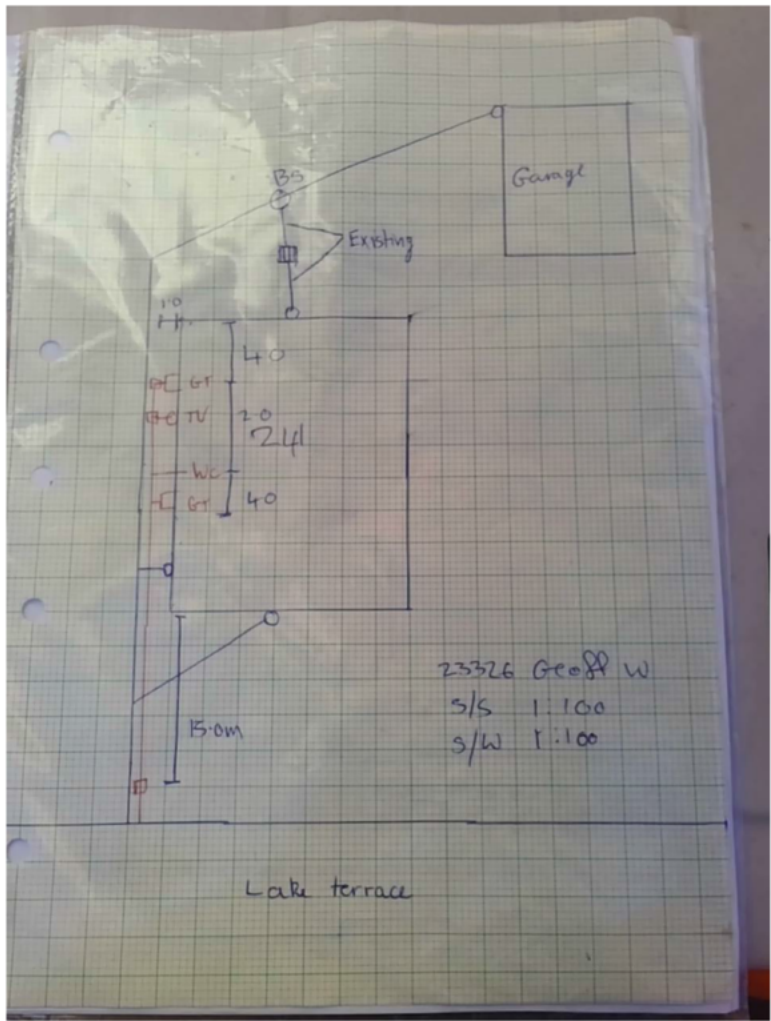 Garage
BS
Existing
1.0
40
GT
TV
20
241
WC
GT
40
23326 Geoff W
S/S 1:100
S/W 1:100
15.0m
Lake terrace